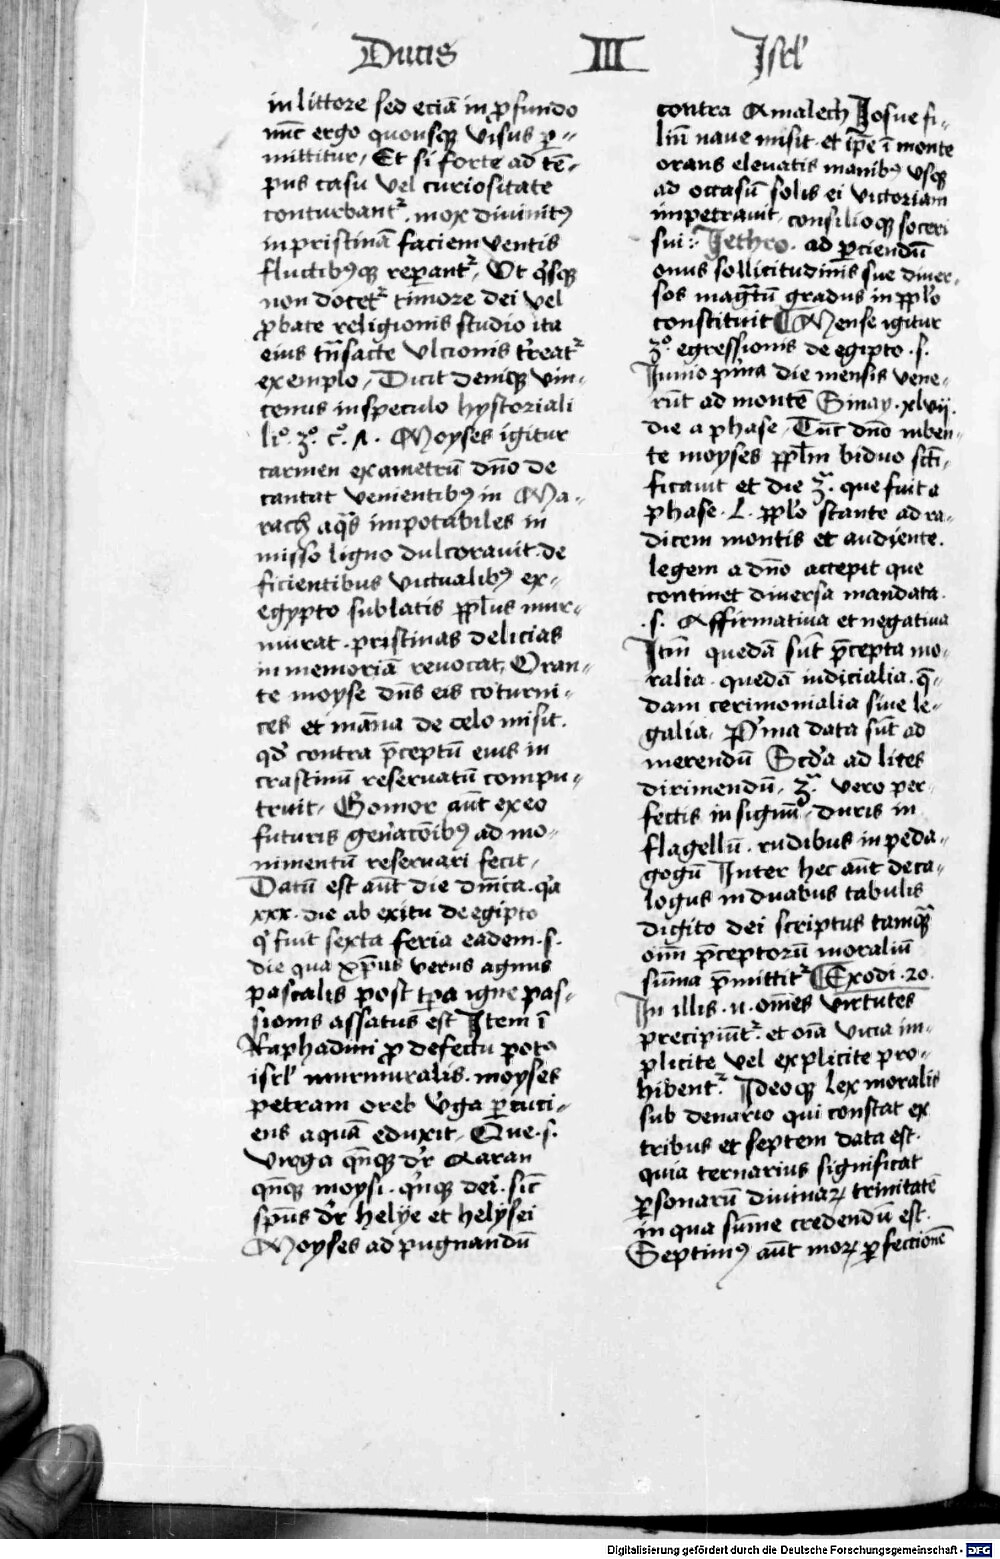 Ducis III Isrl'
in littore sed eciā in ꝓfundo
nūc ergo quousqꝫ visus ꝑ-
mittitur, Et si forte ad tē-
pus casu vel curiositate
conturbantᷣ. mox divinitꝰ
in pristinā faciem ventis
fluctibꝰqꝫ reꝑantᷣ, Ut qͥsqꝫ
non docetᷣ timore dei vel
ꝓbate religionis studio ita
eius tn̄sacte ulcionis treatᷣ
exemplo, Dicit deniqꝫ vin-
cenus in speculo hystoriali
liᵒ. 3ᵒ. cᵒ. 1. Moyses igitur
carmen exametrū dn̄o de
cantat venientibꝰ in Ma-
rach aqͥs impotabiles in
misso ligno dulcoravit. de
ficientibus victualibꝰ ex-
egypto sublatis ppl̄us mur-
murat. pristinas delicias
in memoriā revocat, Oran-
te moyse dn̄s eis coturni-
ces et māna de celo misit.
qd' contra p̄ceptū eius in
crastinū reservatū compu-
truit, Gomor aūt ex eo
futuris gen̄acōibꝰ ad mo-
nimentū reservari fecit,
Datū est aūt die dn̄ica. qͣ
xxx. die ab exitu de egipto
qͥ fuit sexta feria eadem. s.
die qua xp̄us verus agnus
pascalis post tp̄a igne pas-
sionis assatus est Item ī
Raphadini ꝓ defectu ꝑotꝰ
isrl' murmuralis. moyses
petram oreb v̓ga ꝑcuci-
ens aquā eduxit, Que. s.
virga qn̄qꝫ dr̄ Aaran
qn̄qꝫ moysi. qn̄qꝫ dei. sic̄
sp̄us dr̄ helÿe et helÿsei
Moyses ad pugnandū
contra Amalech Iosue fi-
liū nave misit. et ip̄e ī monte
orans elevatis manibꝰ usqꝫ
ad occasū solis ei victoriam
impetravit, consilioqꝫ soceri
sui: Jethro. ad ꝑciendū
onus sollicitudinis sue diver-
sos mag̅tū gradus in ppl̄o
constituit ¶ Mense igitur
3ᵒ. egressionis de egipto. s.
Junio pͥma die mensis vene-
rūt ad montē Sinay. xlvij.
die a phase, Tūc dn̄o iuben-
te moyses ppl̄m biduo scti-
ficavit et die 3ᵃ. que fuit a
phase. L. ppl̄o stante ad ra-
dicem montis et audiente.
legem a dn̄o accepit que
continet diversa mandata.
.s. Affirmativa et negativa
Itm̄ quedā sūt p̄cepta mo-
ralia. quedā iudicialia. q̄-
dam cerimonialia sive le-
galia, Pͥma data sūt ad
merendū Scd̄a ad lites
dirimendū, 3ᵃ. vero per-
fectis in signū. duris in
flagellū. rudibus in peda-
gogū Inter hec aūt deca-
logus in duabus tabulis
digito dei scriptus tamqͣ
oīm p̄ceptorū moraliū
sūma p̄mittitᷣ ¶ Exodi. 20.
In illis. u. om̄es virtutes
precipiūtᷣ. et oīa vicia im-
plicite vel explicite pro-
hibentᷣ. Ideoqꝫ lex moralis
sub denario qui constat ex
tribus et septem data est.
quia ternarius significat
ꝑsonarū divinaꝝ trinitatē
in qua sūme credendū est.
Septimꝰ aūt moꝝ ꝑfectionē
Digitalisierung gefördert durch die Deutsche Forschungsgemeinschaft - DFG